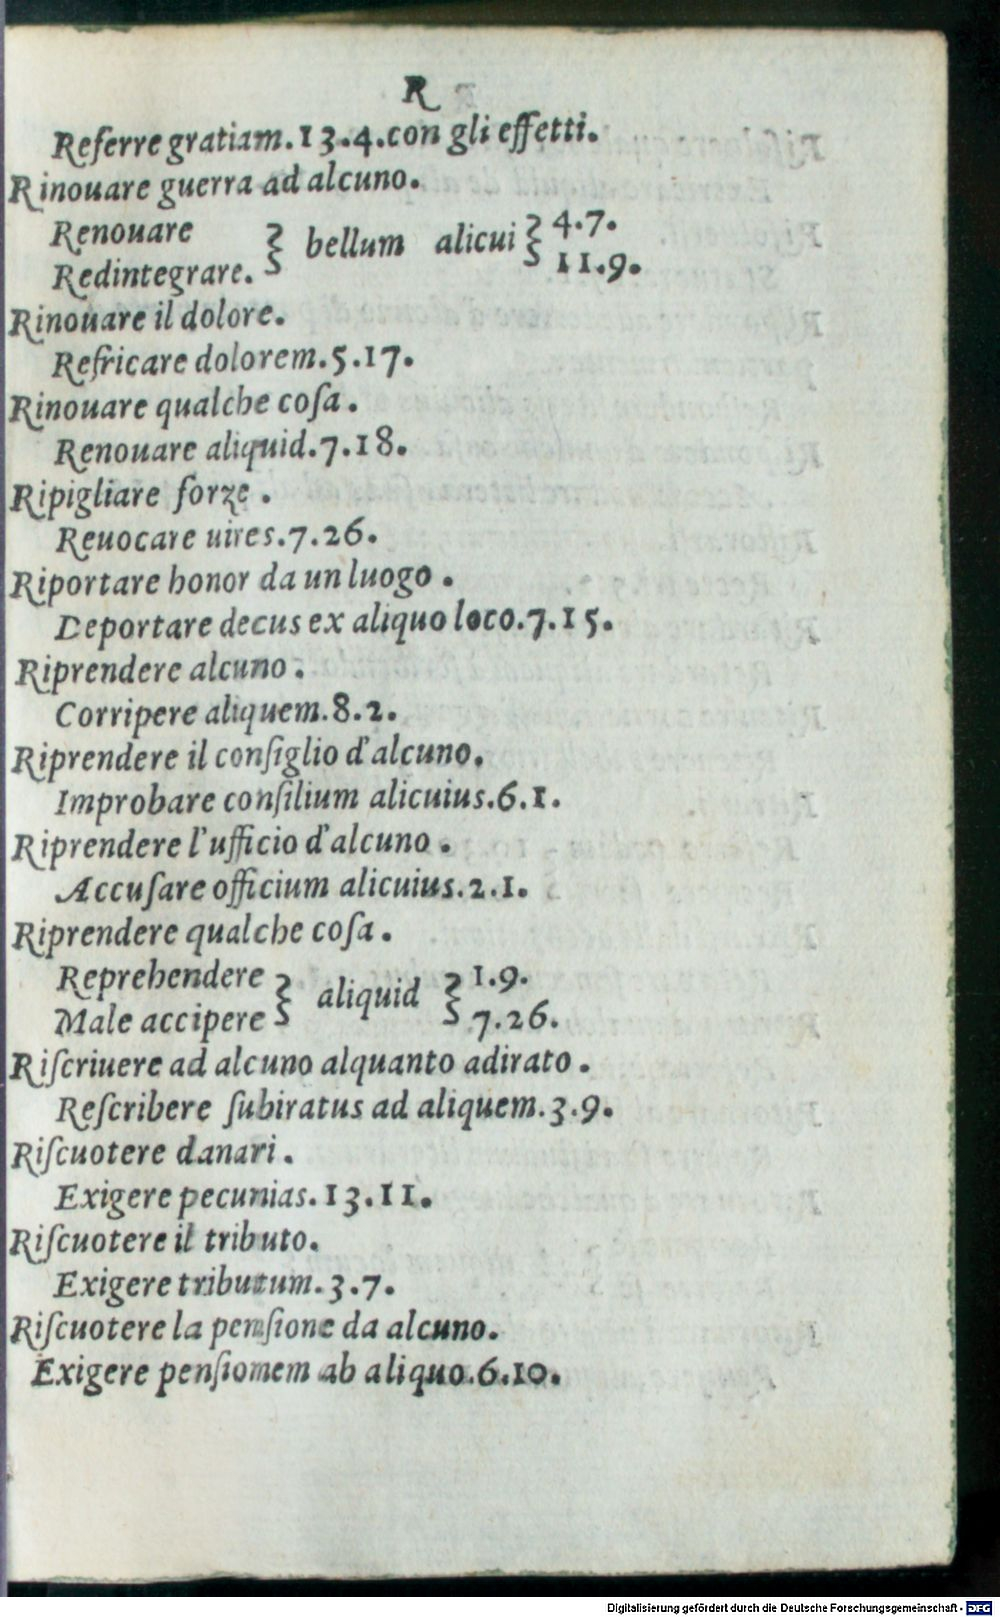 R
Referre gratiam.13.4.con gli effetti.
Rinouare guerra ad alcuno.
Renouare } bellum alicui } 4.7.
Redintegrare. 11.9.
Rinouare il dolore.
Refricare dolorem.5.17.
Rinouare qualche coſa.
Renouare aliquid.7.18.
Ripigliare forze.
Reuocare uires.7.26.
Riportare honor da un luogo.
Deportare decus ex aliquo loco.7.15.
Riprendere alcuno.
Corripere aliquem.8.2.
Riprendere il conſiglio d'alcuno.
Improbare conſilium alicuius.6.1.
Riprendere l'ufficio d'alcuno.
Accuſare officium alicuius.2.1.
Riprendere qualche coſa.
Reprehendere } aliquid } 1.9.
Male accipere 7.26.
Riſcriuere ad alcuno alquanto adirato.
Reſcribere ſubiratus ad aliquem.3.9.
Riſcuotere danari.
Exigere pecunias.13.11.
Riſcuotere il tributo.
Exigere tributum.3.7.
Riſcuotere la penſione da alcuno.
Exigere penſionem ab aliquo.6.10.
Digitalisierung gefördert durch die Deutsche Forschungsgemeinschaft - DFG